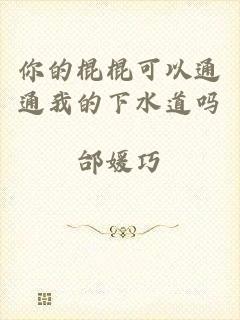 你的棍棍可以通
通我的下水道吗
邰媛巧